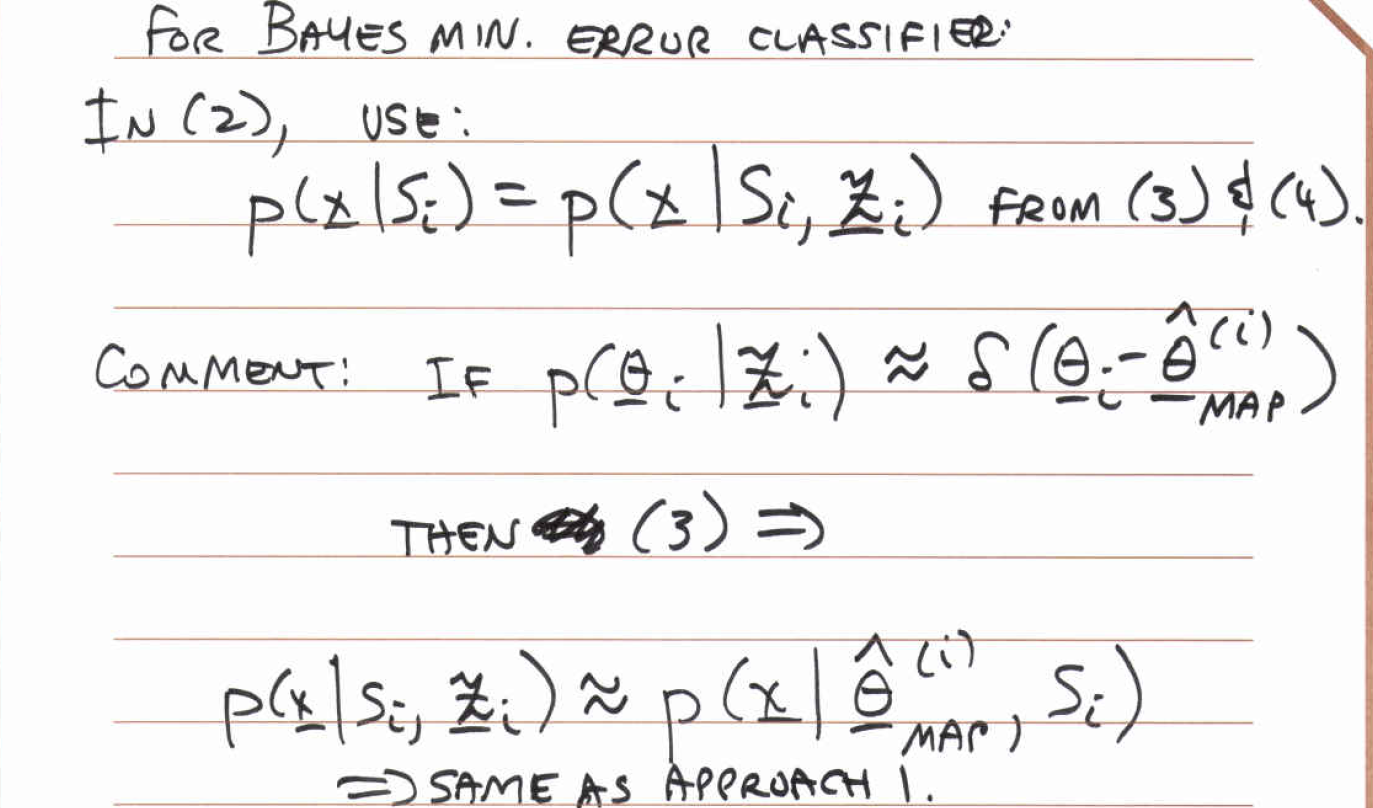 FOR BAYES MIN. ERROR CLASSIFIER:
IN (2), USE:
p(x̲|Sᵢ) = p(x̲ | Sᵢ, z̲̃ᵢ) FROM (3) & (4).
COMMENT: IF p(θ̲ᵢ | z̲̃ᵢ) ≈ δ(θ̲ᵢ - θ̲̂^(i)_MAP)
THEN (3) ⇒
p(x̲|Sᵢ, z̲̃ᵢ) ≈ p(x̲ | θ̲̂^(i)_MAP, Sᵢ)
⇒ SAME AS APPROACH 1.